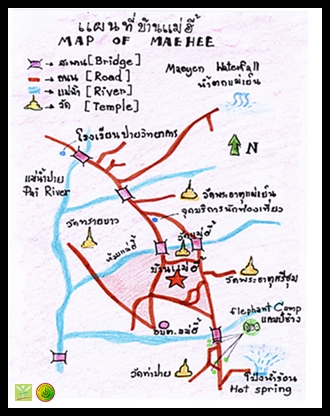 แผนที่บ้านแม่ฮี้
MAP OF MAEHEE
สะพาน [Bridge]
ถนน [Road]
แม่น้ำ [River]
วัด [Temple]
Maeyen Waterfall
น้ำตกแม่เย็น
N
โรงเรียนปายวิทยาคาร
แม่น้ำปาย
Pai River
วัดพระธาตุแม่เย็น
จุดบริการนักท่องเที่ยว
วัดทรายขาว
น้ำแม่ฮี้
วัดแม่ฮี้
บ้านแม่ฮี้
วัดพระธาตุศรีชุม
อบต.แม่ฮี้
Elephant Camp
แคมป์ช้าง
วัดท่าปาย
โป่งน้ำร้อน
Hot spring